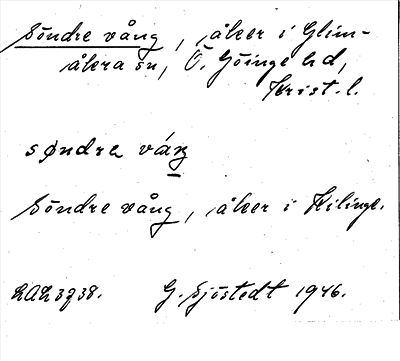 Söndre vång, åker i Glim-
åkra sn, Ö. Göinge hd,
Krist. l.
søndra
Söndre vång, åker i Filinge.
G. Sjöstedt 1946.